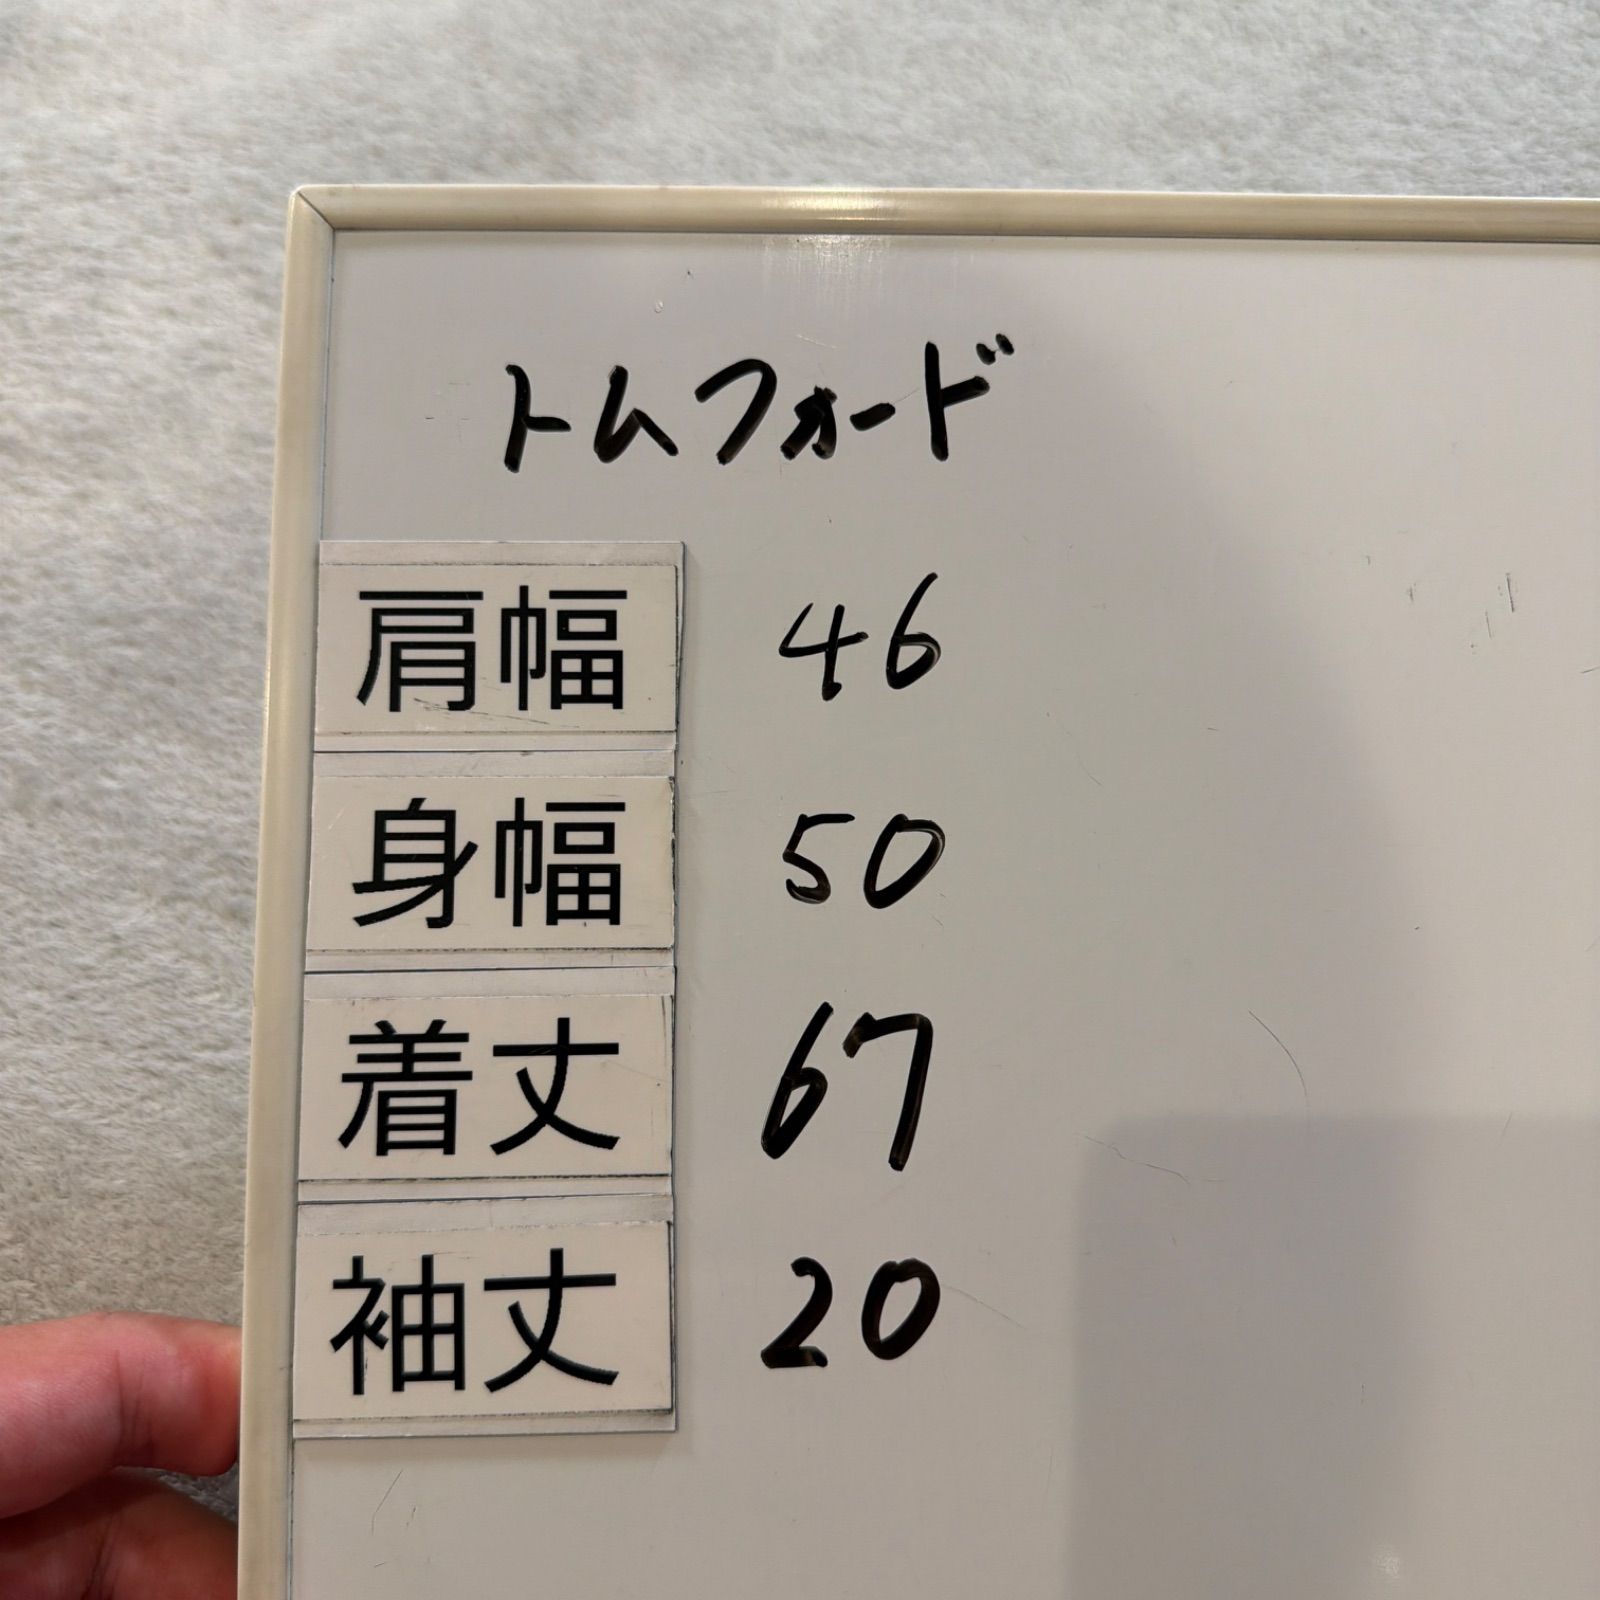 トムフォード
肩幅 46
身幅 50
着丈 67
袖丈 20